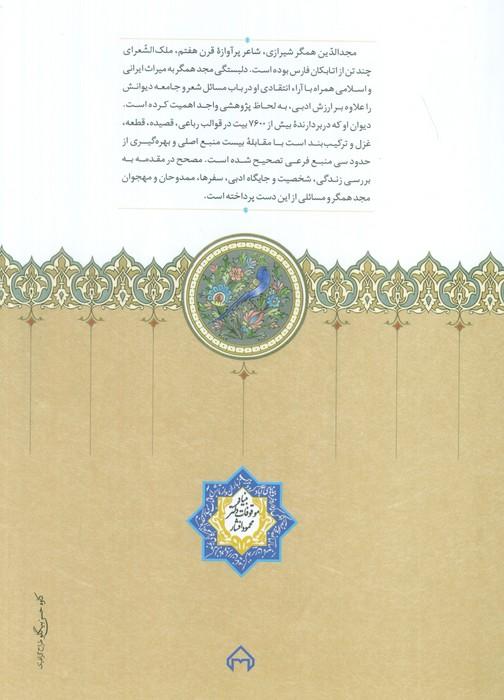 مجدالدّین همگر شیرازی، شاعر پرآوازهٔ قرن هفتم، ملک‌الشّعرای
چند تن از اتابکان فارس بوده است. دلبستگی مجد همگر به میراث ایرانی
و اسلامی همراه با آراء انتقادی او در باب مسائل شعر و جامعه دیوانش
را علاوه بر ارزش ادبی، به لحاظ پژوهشی واجد اهمیت کرده است.
دیوان او که دربردارندهٔ بیش از ۷۶۰۰ بیت در قوالب رباعی، قصیده، قطعه،
غزل و ترکیب‌بند است با مقابلهٔ بیست منبع اصلی و بهره‌گیری از
حدود سی منبع فرعی تصحیح شده است. مصحح در مقدمه به
بررسی زندگی، شخصیت و جایگاه ادبی، سفرها، ممدوحان و مهجوان
مجد همگر و مسائلی از این دست پرداخته است.
بنیاد
موقوفات دکتر
محمود افشار